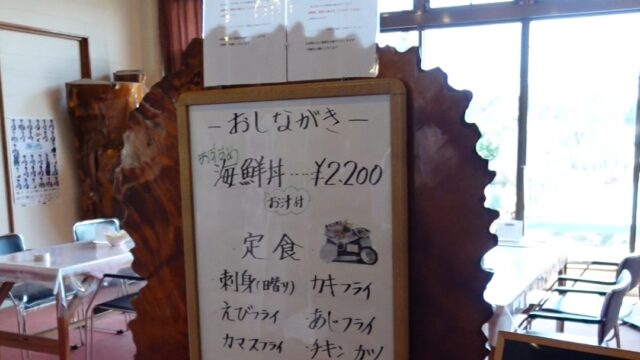 －おしながき－
おすすめ
海鮮丼……¥2.200
お汁付
定食
刺身(日替り) カキフライ
えびフライ あじフライ
カマスフライ チキンカツ